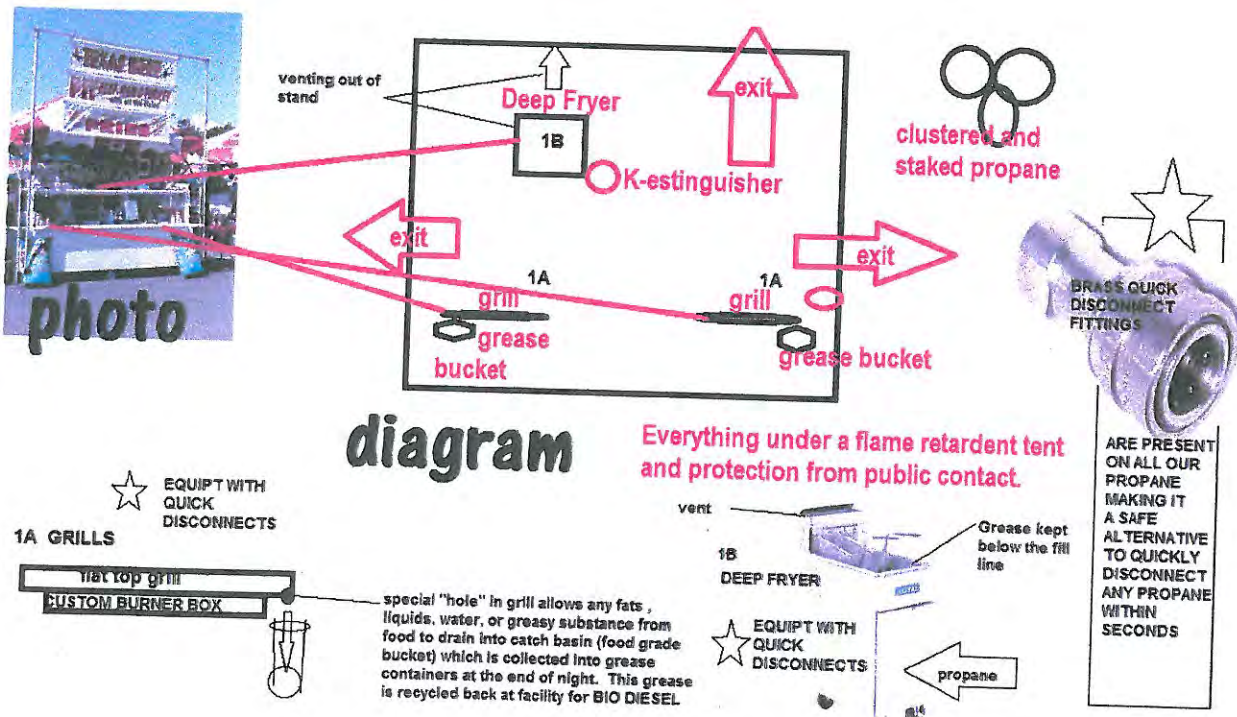 TEXAS
photo
venting out of
stand
Deep Fryer
1B
K-estinguisher
exit
exit
exit
1A
grill
grease
bucket
1A
grill
grease bucket
clustered and
staked propane
BRASS QUICK
DISCONNECT
FITTINGS
ARE PRESENT
ON ALL OUR
PROPANE
MAKING IT
A SAFE
ALTERNATIVE
TO QUICKLY
DISCONNECT
ANY PROPANE
WITHIN
SECONDS
diagram
Everything under a flame retardent tent
and protection from public contact.
EQUIPT WITH
QUICK
DISCONNECTS
1A GRILLS
flat top grill
CUSTOM BURNER BOX
special "hole" in grill allows any fats ,
liquids, water, or greasy substance from
food to drain into catch basin (food grade
bucket) which is collected into grease
containers at the end of night. This grease
is recycled back at facility for BIO DIESEL
vent
1B
DEEP FRYER
Grease kept
below the fill
line
EQUIPT WITH
QUICK
DISCONNECTS
propane